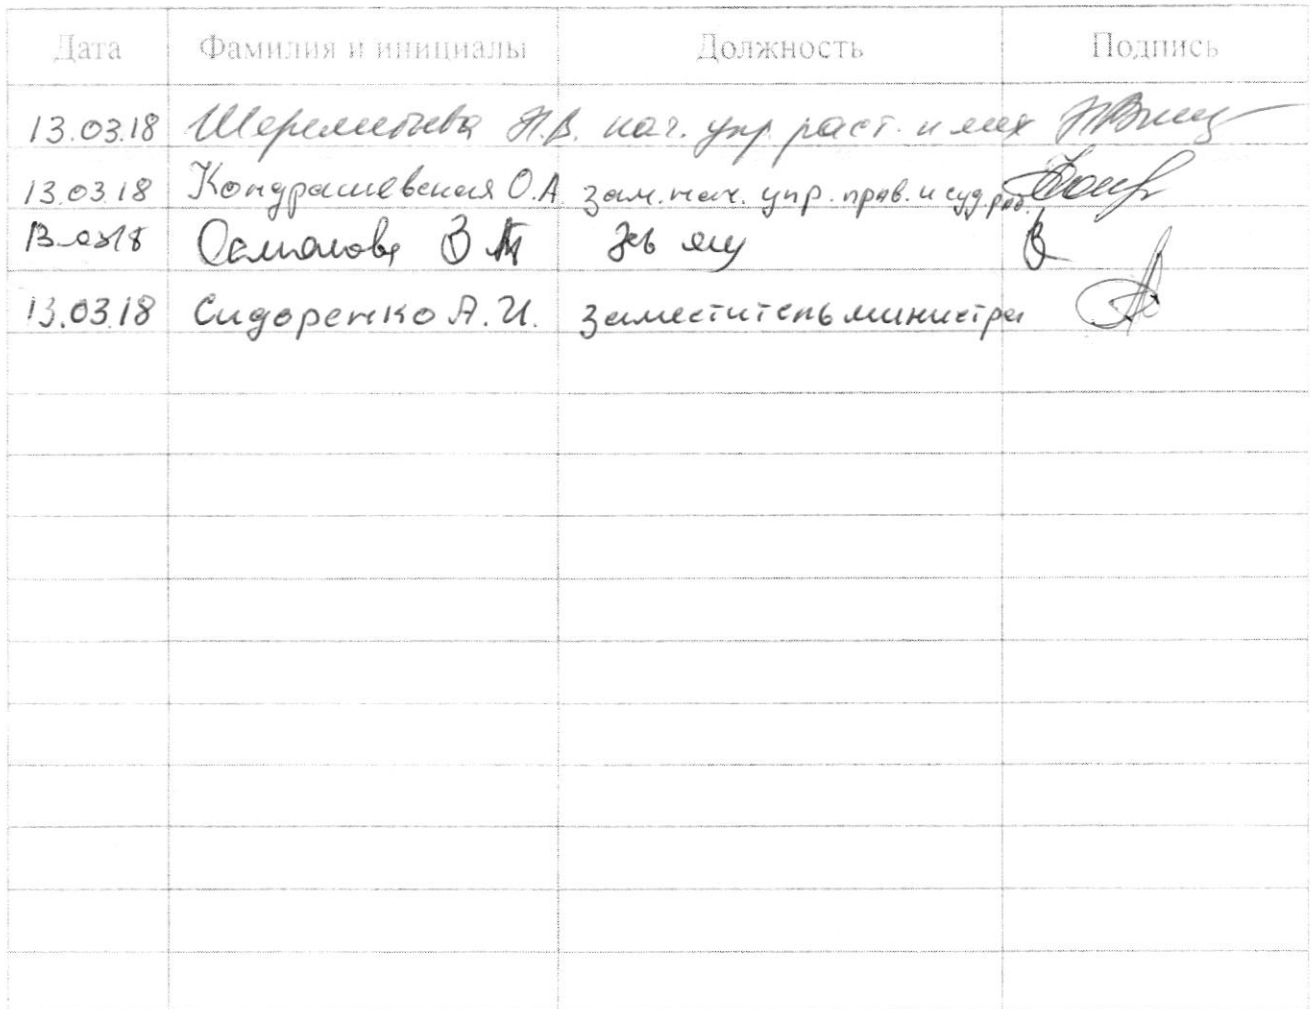 Дата Фамилия и инициалы Должность Подпись
13.03.18 Шереметьева Н.В. нач. упр. раст. и мех
13.03.18 Кондрашевская О.А. зам. нач. упр. прав. и суд. раб.
13.03.18 В
13.03.18 Сидоренко А.И. заместитель министра